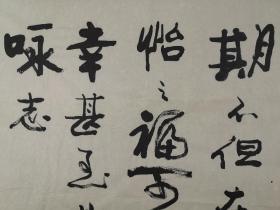 期不但在
怡之福可
幸甚至哉
咏志